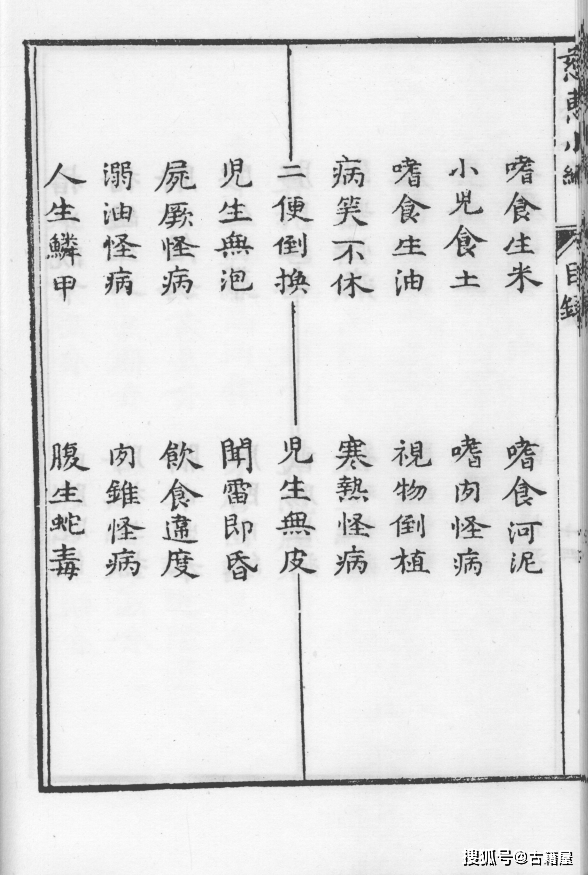 慈惠小編
目錄
嗜食生米
嗜食河泥
小兒食土
嗜肉怪病
嗜食生油
視物倒植
病笑不休
寒熱怪病
二便倒換
児生無皮
児生無泡
聞雷即昏
屍厥怪病
飲食違度
溺油怪病
肉錐怪病
人生鱗甲
腹生蛇毒
搜狐号@古籍屋